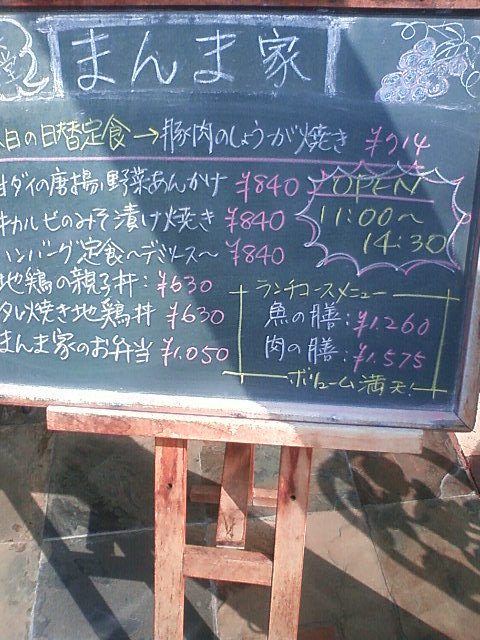 まんま家
日の日替定食→豚肉のしょうが焼き ¥714
ダイの唐揚 野菜あんかけ ¥840
カルビのみそ漬け焼き ¥840
ハンバーグ定食〜デミソース〜 ¥840
地鶏の親子丼: ¥630
タレ焼き地鶏丼 ¥630
まんま家のお弁当 ¥1.050
OPEN
11:00〜
14:30
ランチコースメニュー
魚の膳: ¥1.260
肉の膳: ¥1.575
ボリューム満天!